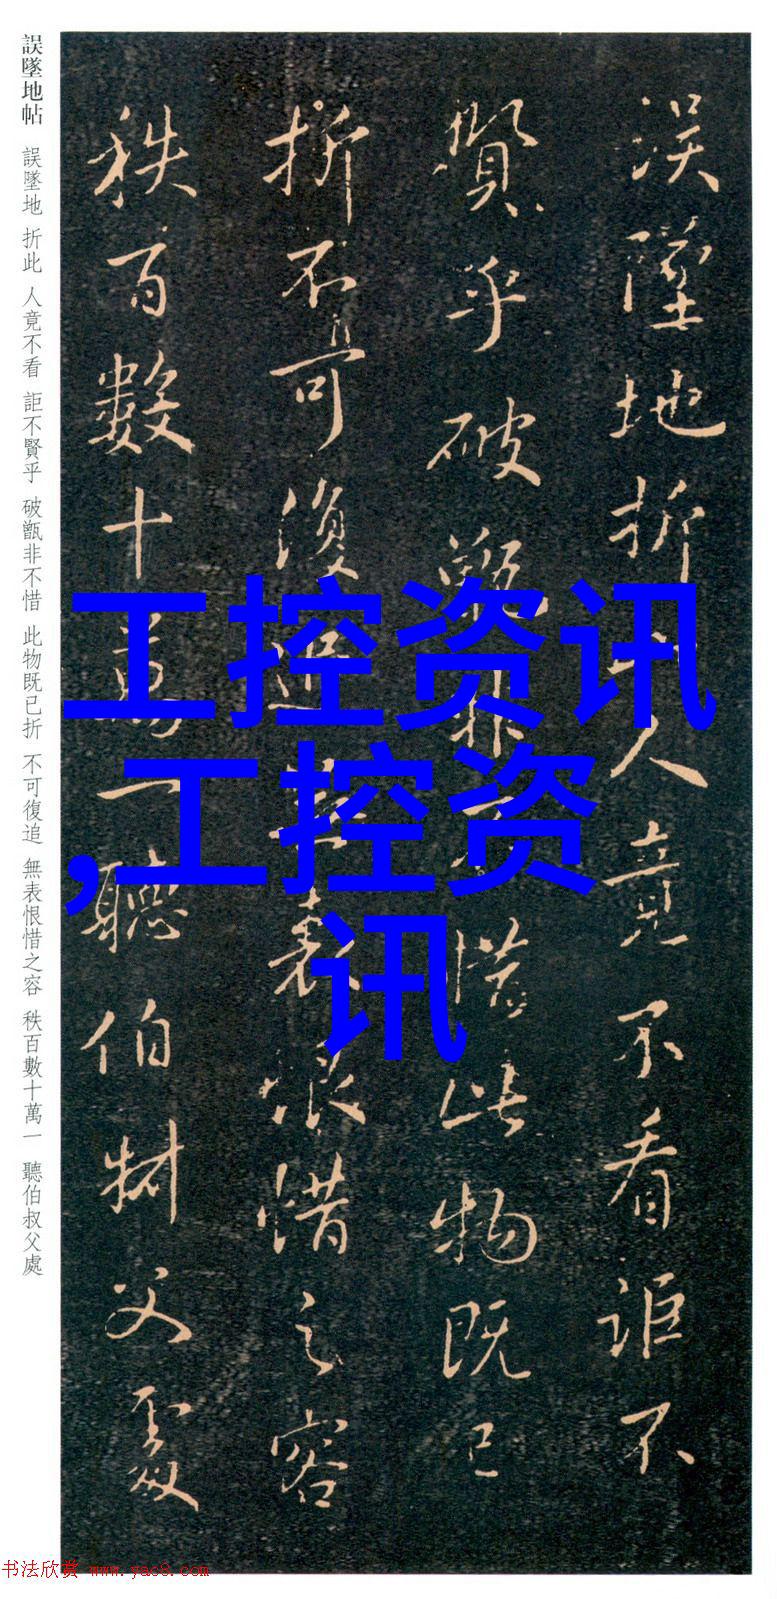 誤墜地帖 誤墜地 折此 人竟不看 詎不賢乎 破甑非不惜 此物既已折 不可復追 無表恨惜之容 秩百數十萬一 聽伯叔父處
误墜地折此人竟不看詎不
賢乎破甑非不惜此物既已
折不可復追無表恨惜之容
秩百數十萬一聽伯叔父處
工控资讯
,工控资
讯
书法欣赏 www.yac8.com